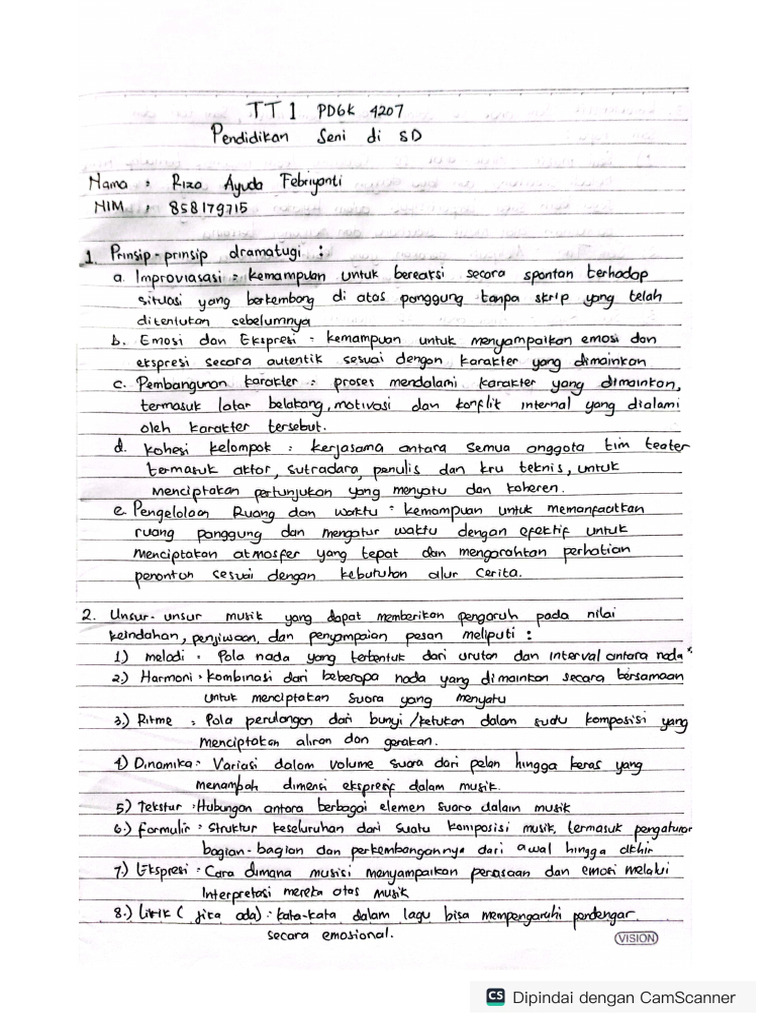 TT 1 PDGK 4207
Pendidikan Seni di SD
Nama : Riza Ayuda Febriyanti
NIM : 858179715
1. Prinsip-prinsip dramatugi :
a. Improviasasi : kemampuan untuk bereaksi secara spontan terhadap
situasi yang berkembang di atas panggung tanpa skrip yang telah
ditentukan sebelumnya
b. Emosi dan Ekspresi : kemampuan untuk menyampaikan emosi dan
ekspresi secara autentik sesuai dengan karakter yang dimainkan
c. Pembangunan karakter : proses mendalami karakter yang dimainkan,
termasuk latar belakang, motivasi dan konflik internal yang dialami
oleh karakter tersebut.
d. kohesi kelompok : kerjasama antara semua anggota tim teater
termasuk aktor, sutradara, penulis dan kru teknis, untuk
menciptakan pertunjukan yang menyatu dan koheren.
e. Pengelolaan Ruang dan waktu : kemampuan untuk memanfaatkan
ruang panggung dan mengatur waktu dengan efektif untuk
menciptakan atmosfer yang tepat dan mengarahkan perhatian
penonton sesuai dengan kebutuhan alur cerita.
2. Unsur-unsur musik yang dapat memberikan pengaruh pada nilai
keindahan, penjiwaan, dan penyampaian pesan meliputi :
1.) melodi : Pola nada yang terbentuk dari urutan dan interval antara nada"
2.) Harmoni : kombinasi dari beberapa nada yang dimainkan secara bersamaan
untuk menciptakan suara yang menyatu
3.) Ritme : Pola perulangan dari bunyi/ketukan dalam suatu komposisi yang
menciptakan aliran dan gerakan.
4) Dinamika : Variasi dalam volume suara dari pelan hingga keras yang
menambah dimensi ekspresif dalam musik.
5) Tekstur : Hubungan antara berbagai elemen suara dalam musik
6.) Formulir : Struktur keseluruhan dari suatu komposisi musik, termasuk pengaturan
bagian-bagian dan perkembangannya dari awal hingga akhir
7.) Ekspresi : Cara dimana musisi menyampaikan perasaan dan emosi melalui
Interpretasi mereka atas musik
8.) Lirik (jika ada) : kata-kata dalam lagu bisa mempengaruhi pendengar
secara emosional.
VISION
CS Dipindai dengan CamScanner